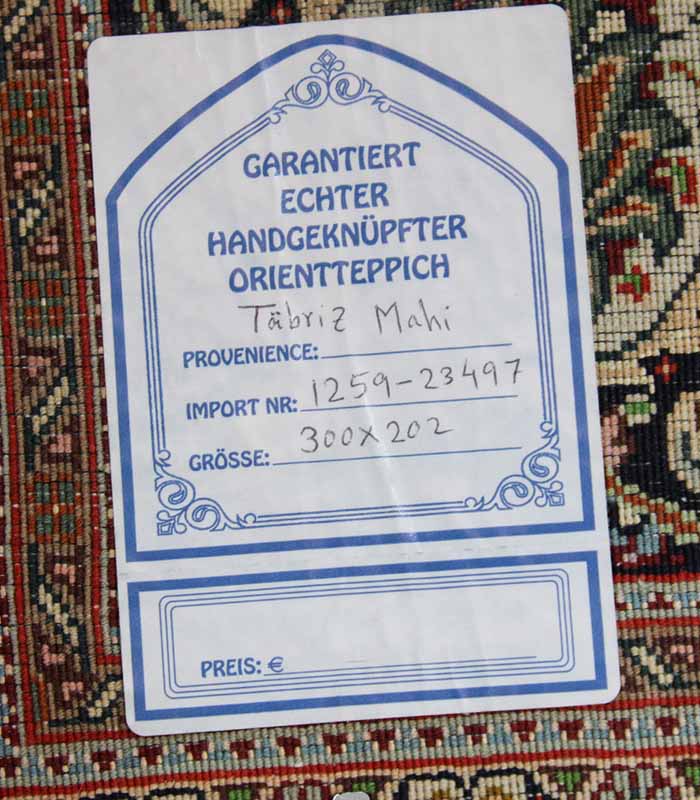 GARANTIERT
ECHTER
HANDGEKNÜPFTER
ORIENTTEPPICH
Täbriz Mahi
PROVENIENCE:
IMPORT NR: 1259-23497
GRÖSSE: 300x202
PREIS: €